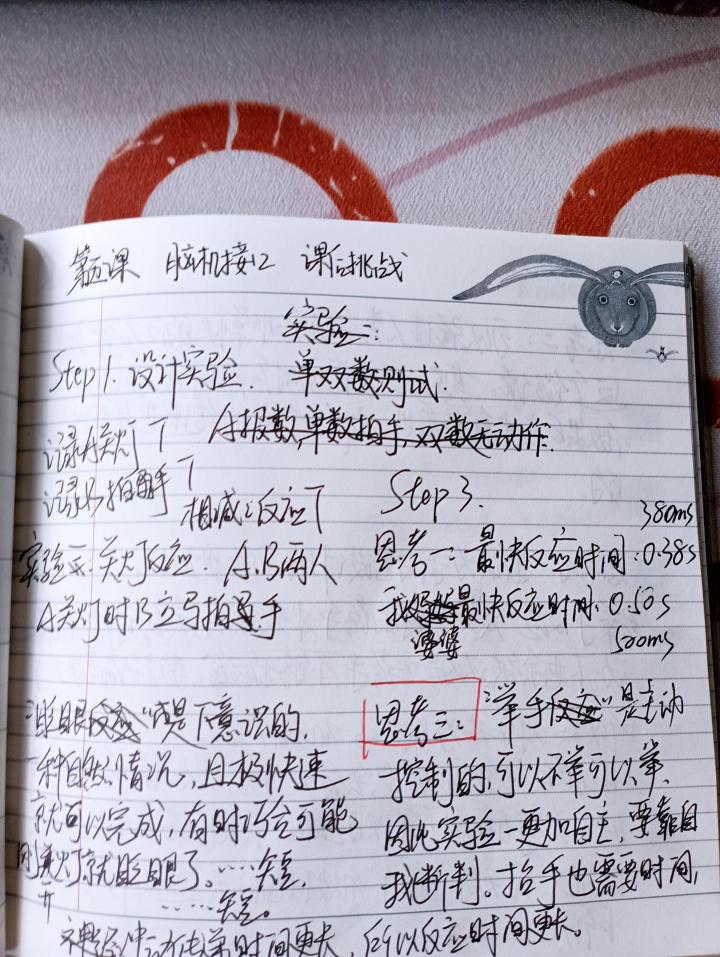 第五课 脑机接口 课后挑战
实验一:
Step 1. 设计实验. 单双数测试.
A报数,单数拍手,双数无动作.
记录A关灯T
记录B拍手T
相减=反应T
实验二: 关灯反应. A.B两人
A关灯时B立马拍手
Step 3.
380ms
思考一: 最快反应时间:0.38s
我婆婆最快反应时间:0.50s
500ms
"眨眼反应"是下意识的,
一种自然情况,且极快速
就可以完成,有时巧合可能
刚关灯就眨眼了。……短,
……短。
思考三: "举手反应"是主动
控制的,可以不举可以举,
因此实验一更加自主,要靠自
我断判。抬手也需要时间,
时间更长,所以反应时间更长。